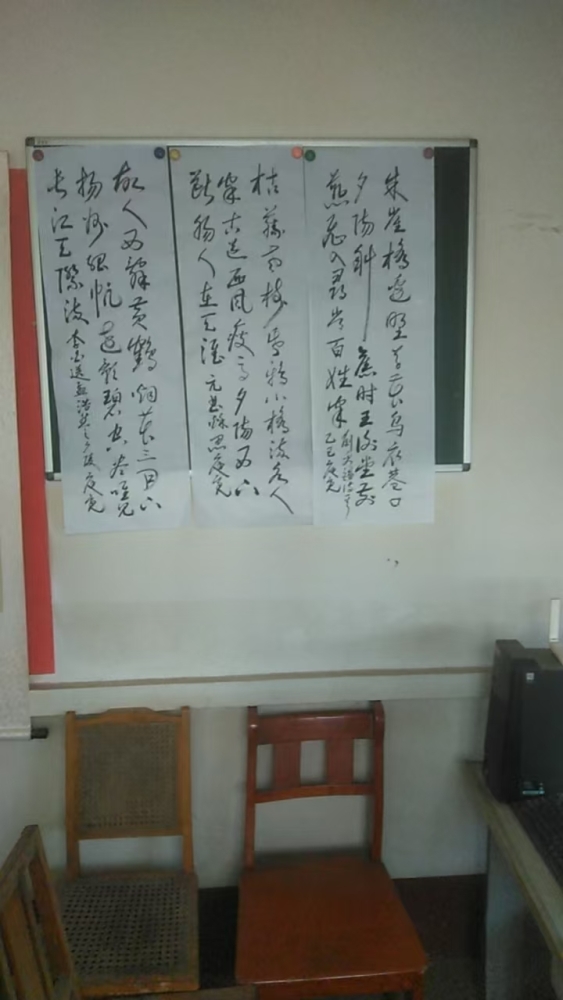 朱雀橋邊野草花烏衣巷口
夕陽斜舊時王謝堂前
燕飛入尋常百姓家
枯藤老樹昏鴉小橋流水人
家古道西風瘦馬夕陽西下
斷腸人在天涯 元曲
故人西辭黃鶴 煙花三月下
揚州孤帆遠影碧空盡唯見
長江天際流 李白送孟浩然之